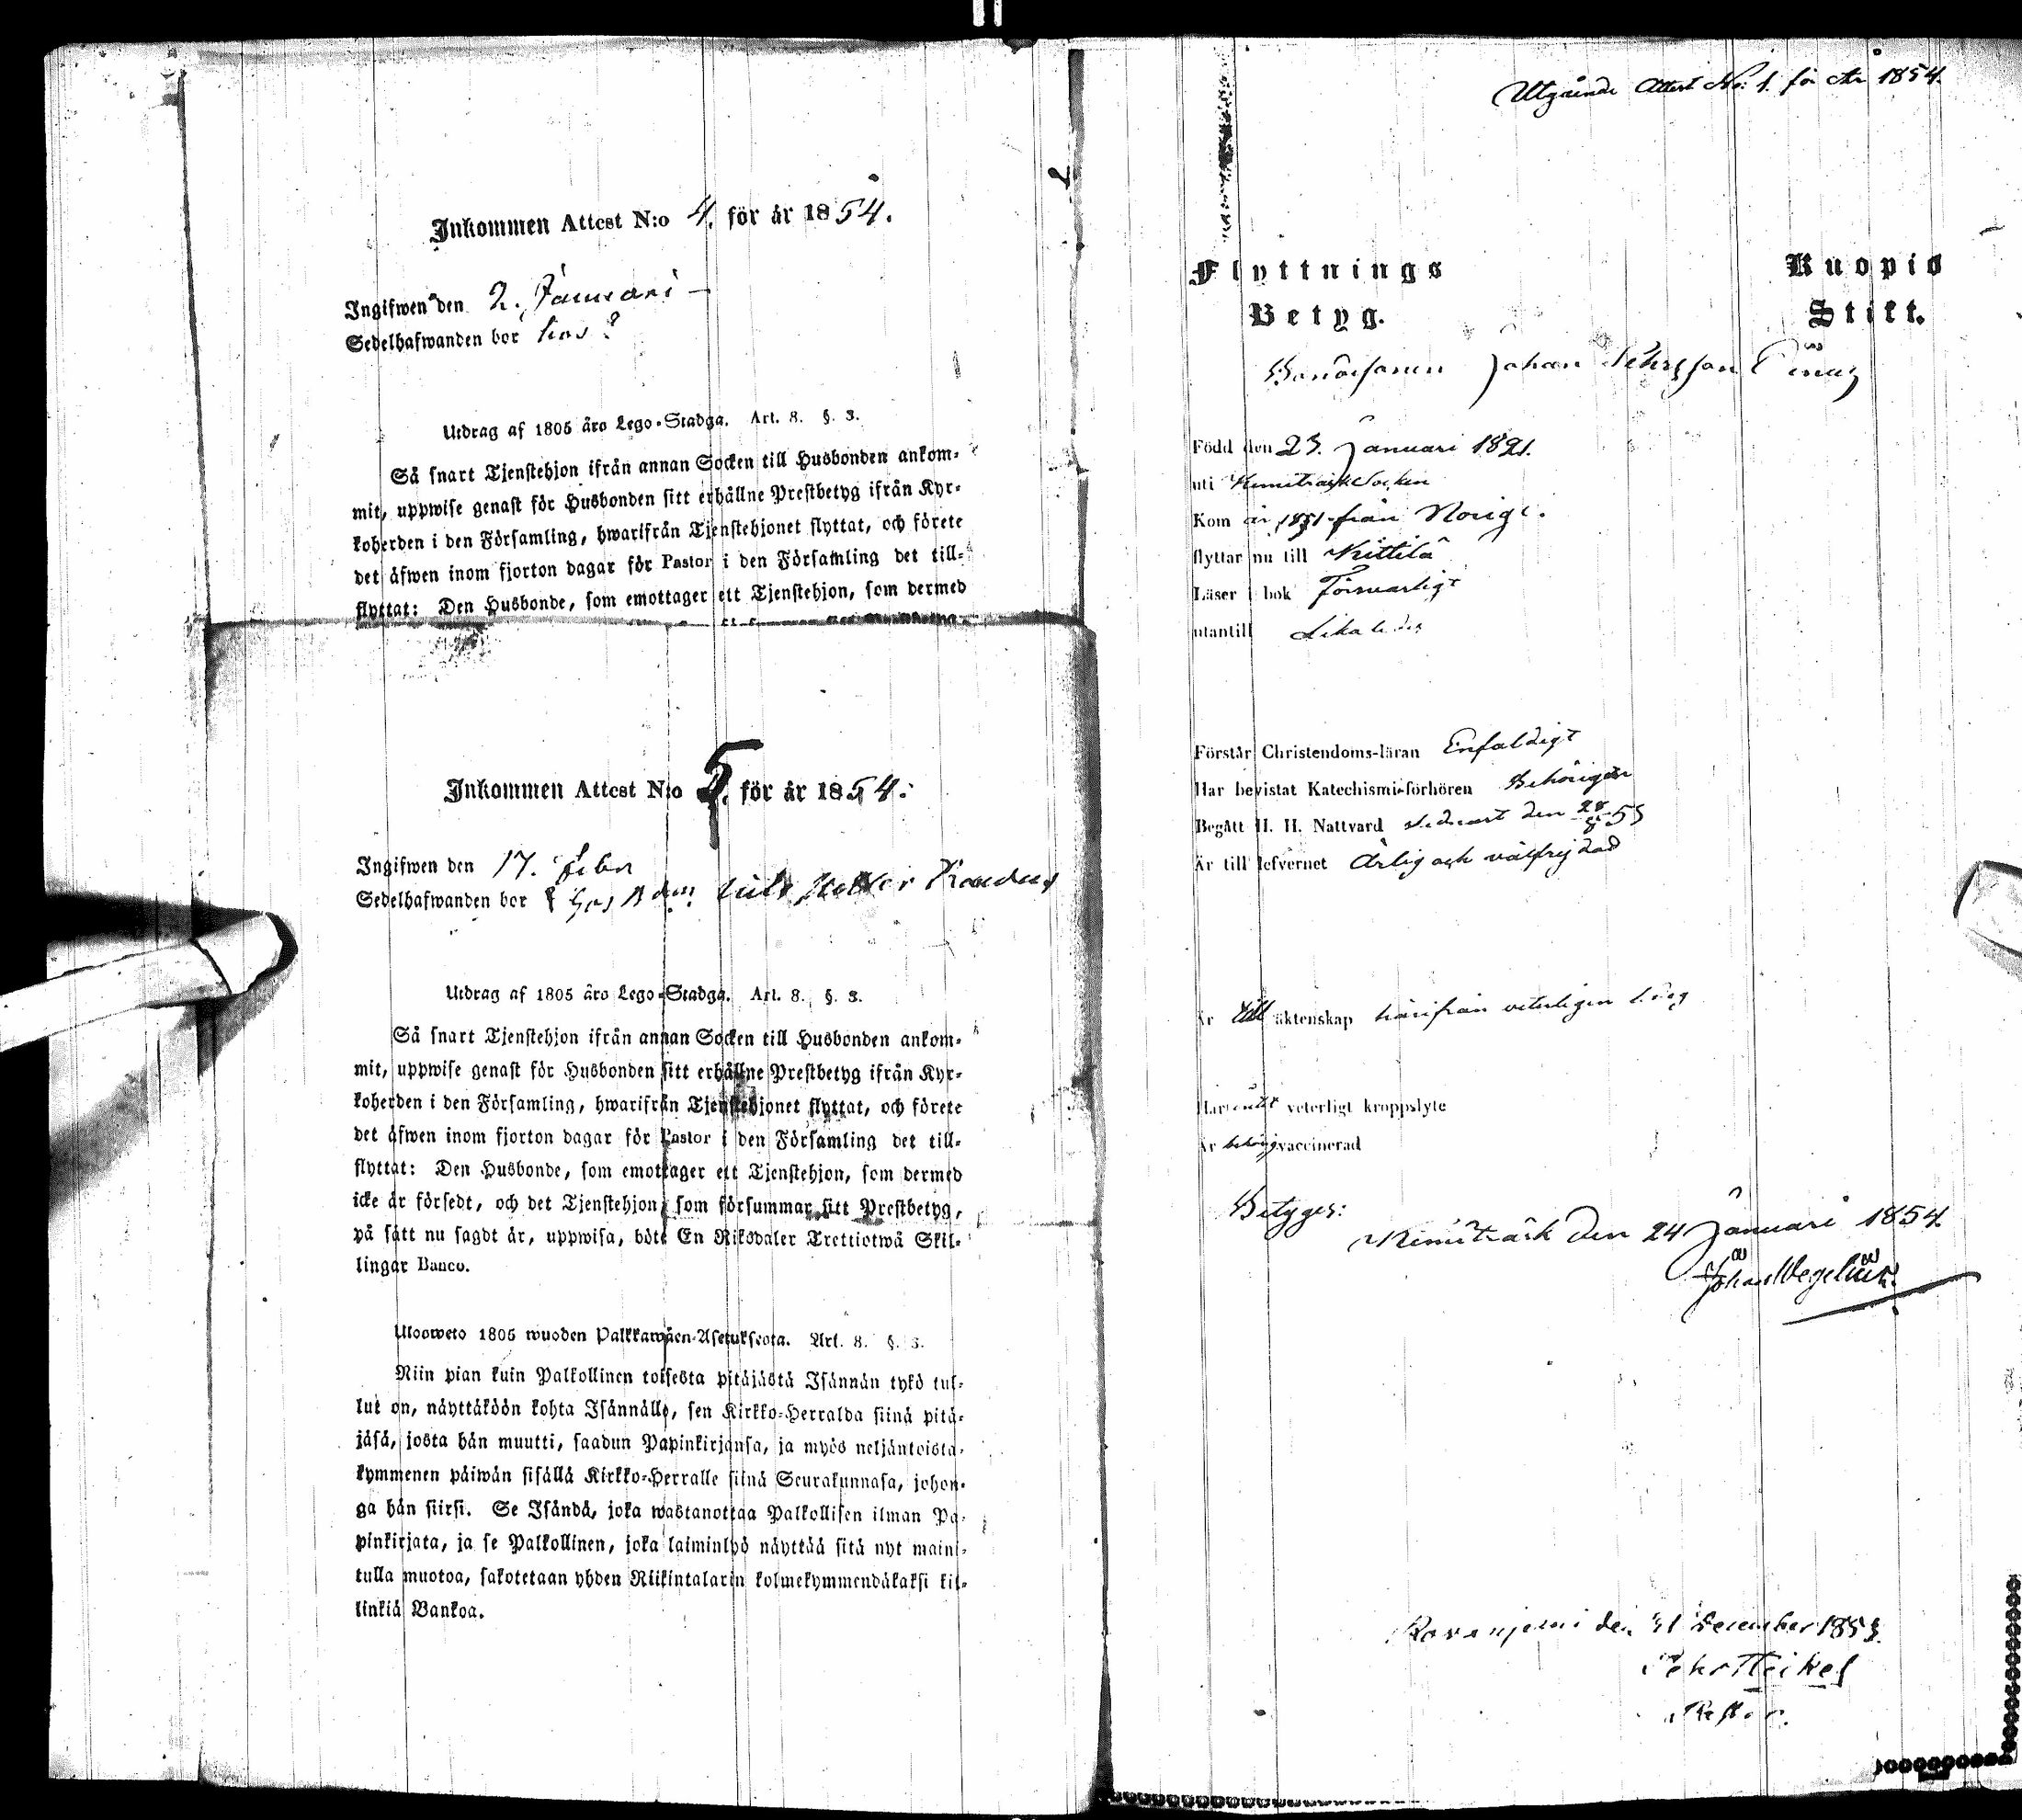 Inkommen Attest N:o 4. för år 1854.
Ingifwen den 2. Januari
Sedelhafwanden bor hos
Utdrag af 1805 års Lego-Stadga. Art. 8. §. 3.
Så snart Tjenstehjon ifrån annan Socken till Husbonden ankom-
mit, uppwise genast för Husbonden sitt erhållne Prestbetyg ifrån Kyr-
koherden i den Församling, hwarifrån Tjenstehjonet flyttat, och förete
det äfwen inom fjorton dagar för Pastor i den Församling det till-
flyttat: Den Husbonde, som emottager ett Tjenstehjon, som dermed
Inkommen Attest N:o 5. för år 1854.
Ingifwen den 17. Febr
Sedelhafwanden bor hos
Utdrag af 1805 års Lego-Stadga. Art. 8. §. 3.
Så snart Tjenstehjon ifrån annan Socken till Husbonden ankom-
mit, uppwise genast för Husbonden sitt erhållne Prestbetyg ifrån Kyr-
koherden i den Församling, hwarifrån Tjenstehjonet flyttat, och förete
det äfwen inom fjorton dagar för Pastor i den Församling det till-
flyttat: Den Husbonde, som emottager ett Tjenstehjon, som dermed
icke är försedt, och det Tjenstehjon, som försummar sitt Prestbetyg,
på sätt nu sagdt är, uppwisa, böte En Riksdaler Trettiotwå Skil-
lingar Banco.
Ulosweto 1805 wuoden Palkkawäen-Asetuksesta. Art. 8. §. 3.
Niin pian kuin Palkollinen toisesta pitäjästä Isännän tykö tul-
lut on, näyttäköön kohta Isännälle, sen Kirkko-Herralda siinä pitä-
jäsä, josta hän muutti, saadun Papinkirjansa, ja myös neljäntoista-
kymmenen päiwän sisällä Kirkko-Herralle siinä Seurakunnasa, johon-
ga hän siirsi. Se Isändä, joka wastanottaa Palkollisen ilman Pa-
pinkirjata, ja se Palkollinen, joka laiminlyö näyttää sitä nyt maini-
tulla muotoa, sakotetaan yhden Riikintalarin kolmekymmendäkaksi kil-
linkiä Bankoa.
Utgående Attest No: 1. för År 1854.
Flyttnings Kuopio
Betyg. Stift.
Bondesonen Johan Pehrsson
Född den 23. Januari 1821.
uti Kemiträsk Socken
Kom år 1851 från Norige.
flyttar nu till Kittilä
Läser i bok Försvarligt
utantill Likaledes
Förstår Christendoms-läran Enfaldigt
Har bevistat Katechismi-förhören Behörigen
Begått H. H. Nattvard sednast den 28/8 53
Är till lefvernet Ärlig och välfrejdad
Är till äktenskap härifrån veterligen ledig
Har intet veterligt kroppslyte
Är behörig vaccinerad
Betygas:
Kemiträsk den 24 Januari 1854.
Johan Wegelius
Rovaniemi den 31 December 1853.
Pehr Heikel
Pastor.